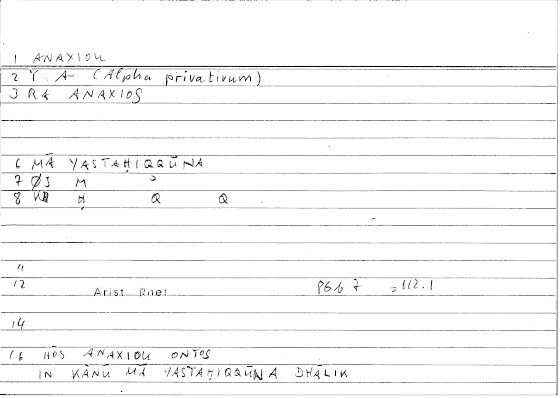 1 ANAXIOU
2 Y A (Alpha privativum)
3 RA ANAXIOS
6 MĀ YASTAḤIQQŪNA
7 ØJ M
8 Ḥ Q Q
11
12 Arist Rhet 86b7 =112.1
14
16 HŌS ANAXIOU ONTOS
IN KĀNŪ MĀ YASTAḤIQQŪNA DHĀLIK